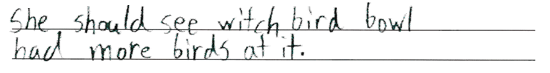 She should see witch bird bowl
had more birds at it.